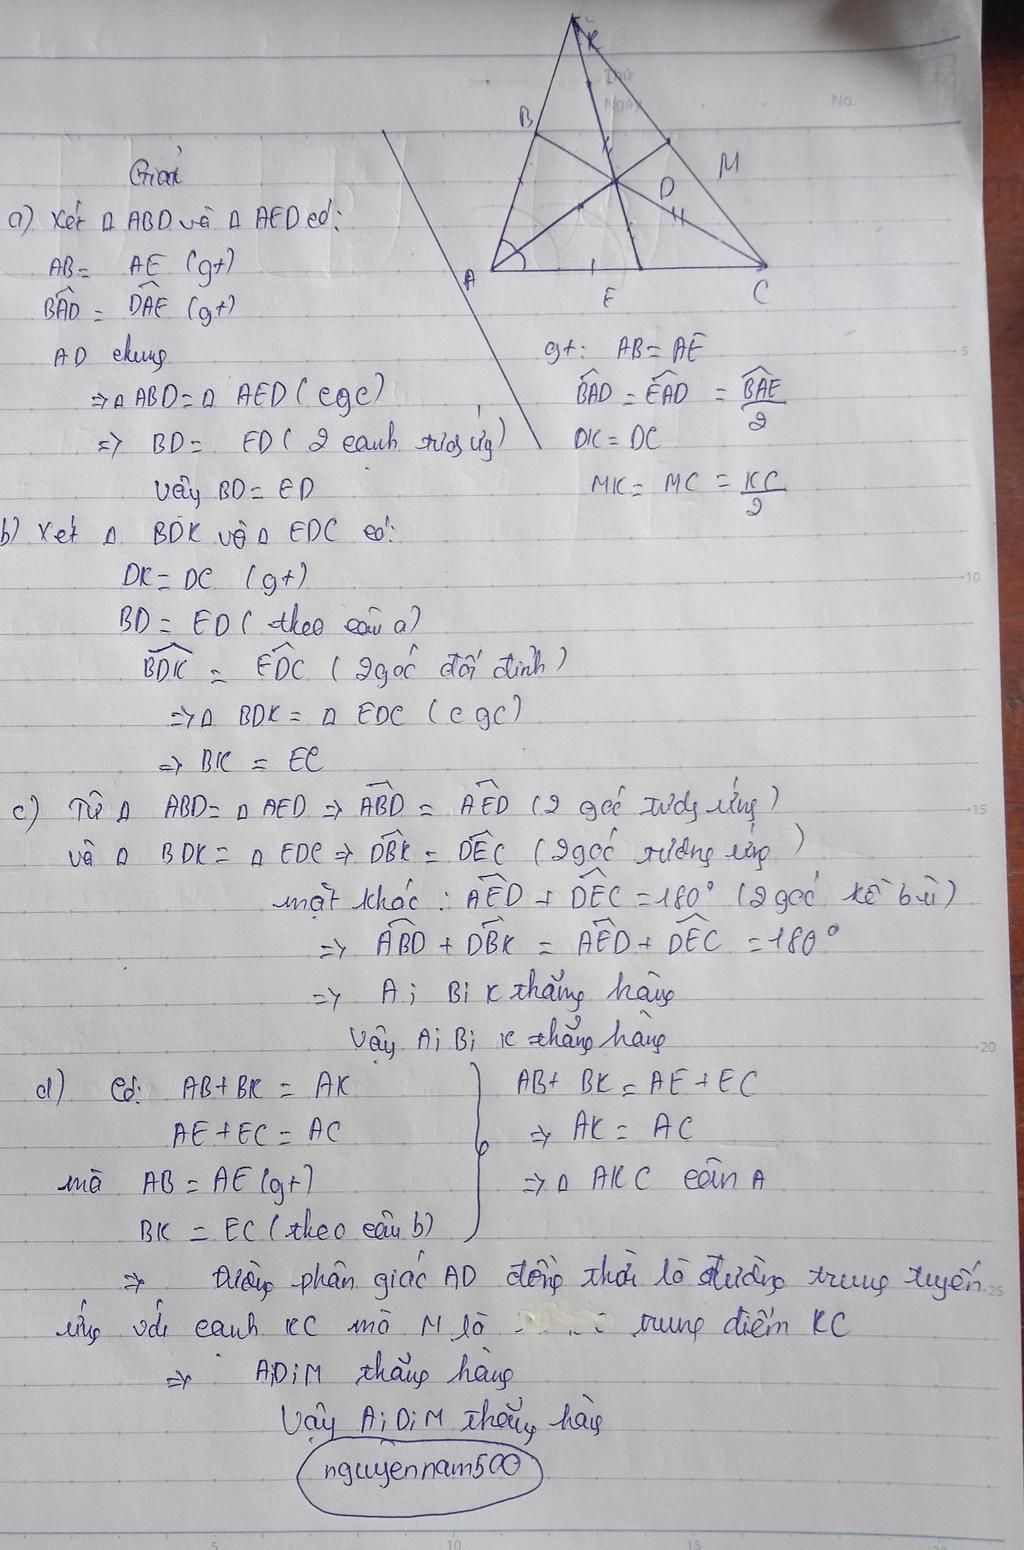 Thứ
Ngày No.
K
B
M
D
A
E
C
Giải
a) Xét Δ ABD và Δ AED có:
AB = AE (gt)
BAD = DAE (gt)
AD chung
=> Δ ABD = Δ AED (cgc)
=> BD = ED (2 cạnh tương ứng)
Vậy BD = ED
gt: AB = AE
BAD = EAD = BAE/2
DK = DC
MK = MC = KC/2
b) Xét Δ BDK và Δ EDC có:
DK = DC (gt)
BD = ED (theo câu a)
BDK = EDC (2 góc đối đỉnh)
=> Δ BDK = Δ EDC (cgc)
=> BK = EC
c) Từ Δ ABD = Δ AED => ABD = AED (2 góc tương ứng)
và Δ BDK = Δ EDC => DBK = DEC (2 góc tương ứng)
mặt khác: AED + DEC = 180° (2 góc kề bù)
=> ABD + DBK = AED + DEC = 180°
=> A; B; K thẳng hàng
Vậy A; B; K thẳng hàng
d) Có: AB + BK = AK
AE + EC = AC
mà AB = AE (gt)
BK = EC (theo câu b)
AB + BK = AE + EC
=> AK = AC
=> Δ AKC cân A
=> Đường phân giác AD đồng thời là đường trung tuyến
ứng với cạnh KC mà M là trung điểm KC
=> A;D;M thẳng hàng
Vậy A;D;M thẳng hàng
nguyennam500
5
10
15
20
25
5 10 15